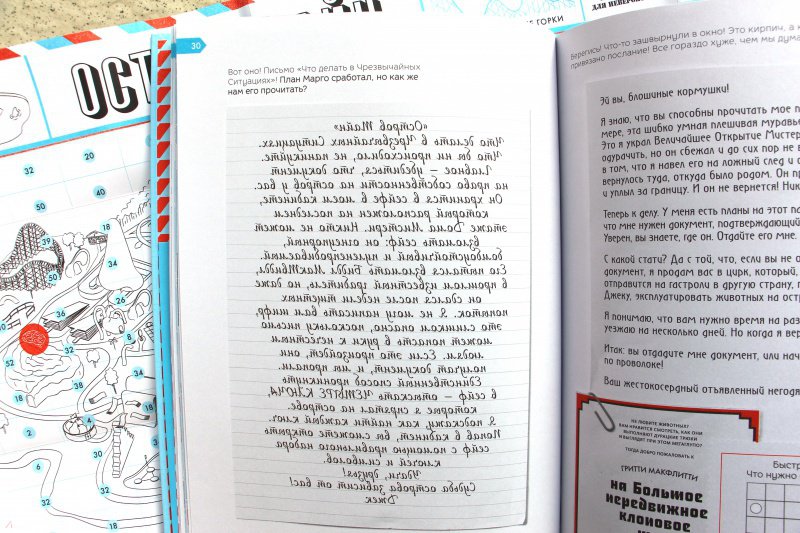 30
Вот оно! Письмо «Что делать в Чрезвычайных
Ситуациях»! План Марго сработал, но как же
нам его прочитать?
«Остров Тайн»
Что делать в Чрезвычайных Ситуациях.
Что бы ни происходило, не паникуйте.
Главное – убедитесь, что документ
на право собственности на остров у вас.
Он хранится в сейфе в моем кабинете,
который расположен на последнем
этаже Дома Мистери. Никто не может
взломать сейф: он огнеупорный,
бомбоустойчивый и пуленепробиваемый.
Его пытался взломать
в прошлом известный грабитель, но даже
он сдался после недели тщетных
попыток. Я не могу написать вам шифр,
это слишком опасно, поскольку письмо
может попасть в руки к нечестным
людям. Если это произойдет, они
получат документ, и мы пропали.
Единственный способ проникнуть
в сейф – отыскать ЧЕТЫРЕ КЛЮЧА,
которые я спрятал на острове.
Я подскажу, как найти каждый ключ.
Попав в кабинет, вы сможете открыть
сейф с помощью правильного набора
ключей и символов.
Удачи, друзья!
Судьба острова зависит от вас!
Джек
Берегись! Что-то зашвырнули в окно! Это кирпич, а к
привязано послание! Все гораздо хуже, чем мы дума
Эй вы, блошиные кормушки!
Я знаю, что вы способны прочитать мое п
мере, эта шибко умная плешивая муравье
Это я украл Величайшее Открытие Мистер
одурачить, но он сбежал и до сих пор не в
в том, что я навел его на ложный след и о
вернулось туда, откуда было родом. Он пр
и уплыл за границу. И он не вернется! Ник
Теперь к делу. У меня есть планы на этот по
что мне нужен документ, подтверждающий
Уверен, вы знаете, где он. Отдайте его мне.
С какой стати? Да с той, что, если вы не о
документ, я продам вас в цирк, который,
отправится на гастроли в другую страну, г
Джеку, эксплуатировать животных на остр
Я понимаю, что вам нужно время на раз
уезжаю на несколько дней. Но когда я вер
Итак: вы отдадите мне документ, или нач
по проволоке!
Ваш жестокосердый отъявленный негодя
НЕ ЛЮБИТЕ ЖИВОТНЫХ?
ВАМ НРАВИТСЯ СМОТРЕТЬ, КАК ОНИ
ВЫПОЛНЯЮТ ДУРАЦКИЕ ТРЮКИ
И ВЫГЛЯДЯТ ПРИ ЭТОМ МЕГАГЛУПО?
ТОГДА ДОБРО ПОЖАЛОВАТЬ К
ГРИТТИ МАКФЛИТТИ
на Большое
нередвижное
клоновое
Быстр
Что нужно
ОСТ
ГОРКИ
32
20
50
40
39
50
34
26
36
32
52
38
32
18
6
32
18